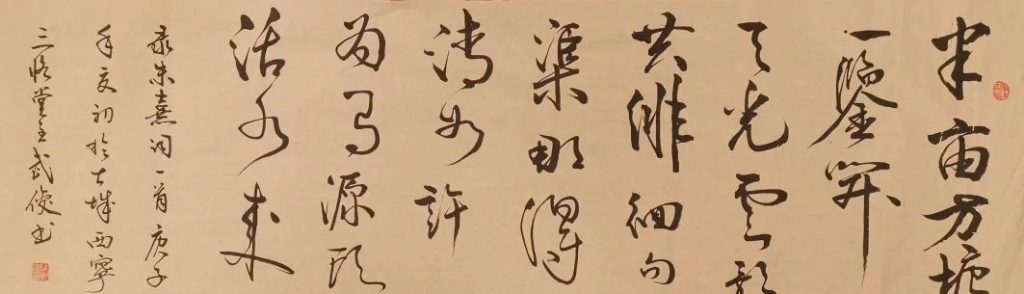 半亩方塘
一鑒開
天光雲影
共徘徊问
渠那得
清如許
为有源頭
活水来
录朱熹词一首庚子
年夏初於古城西寧
三悟堂主武俊书